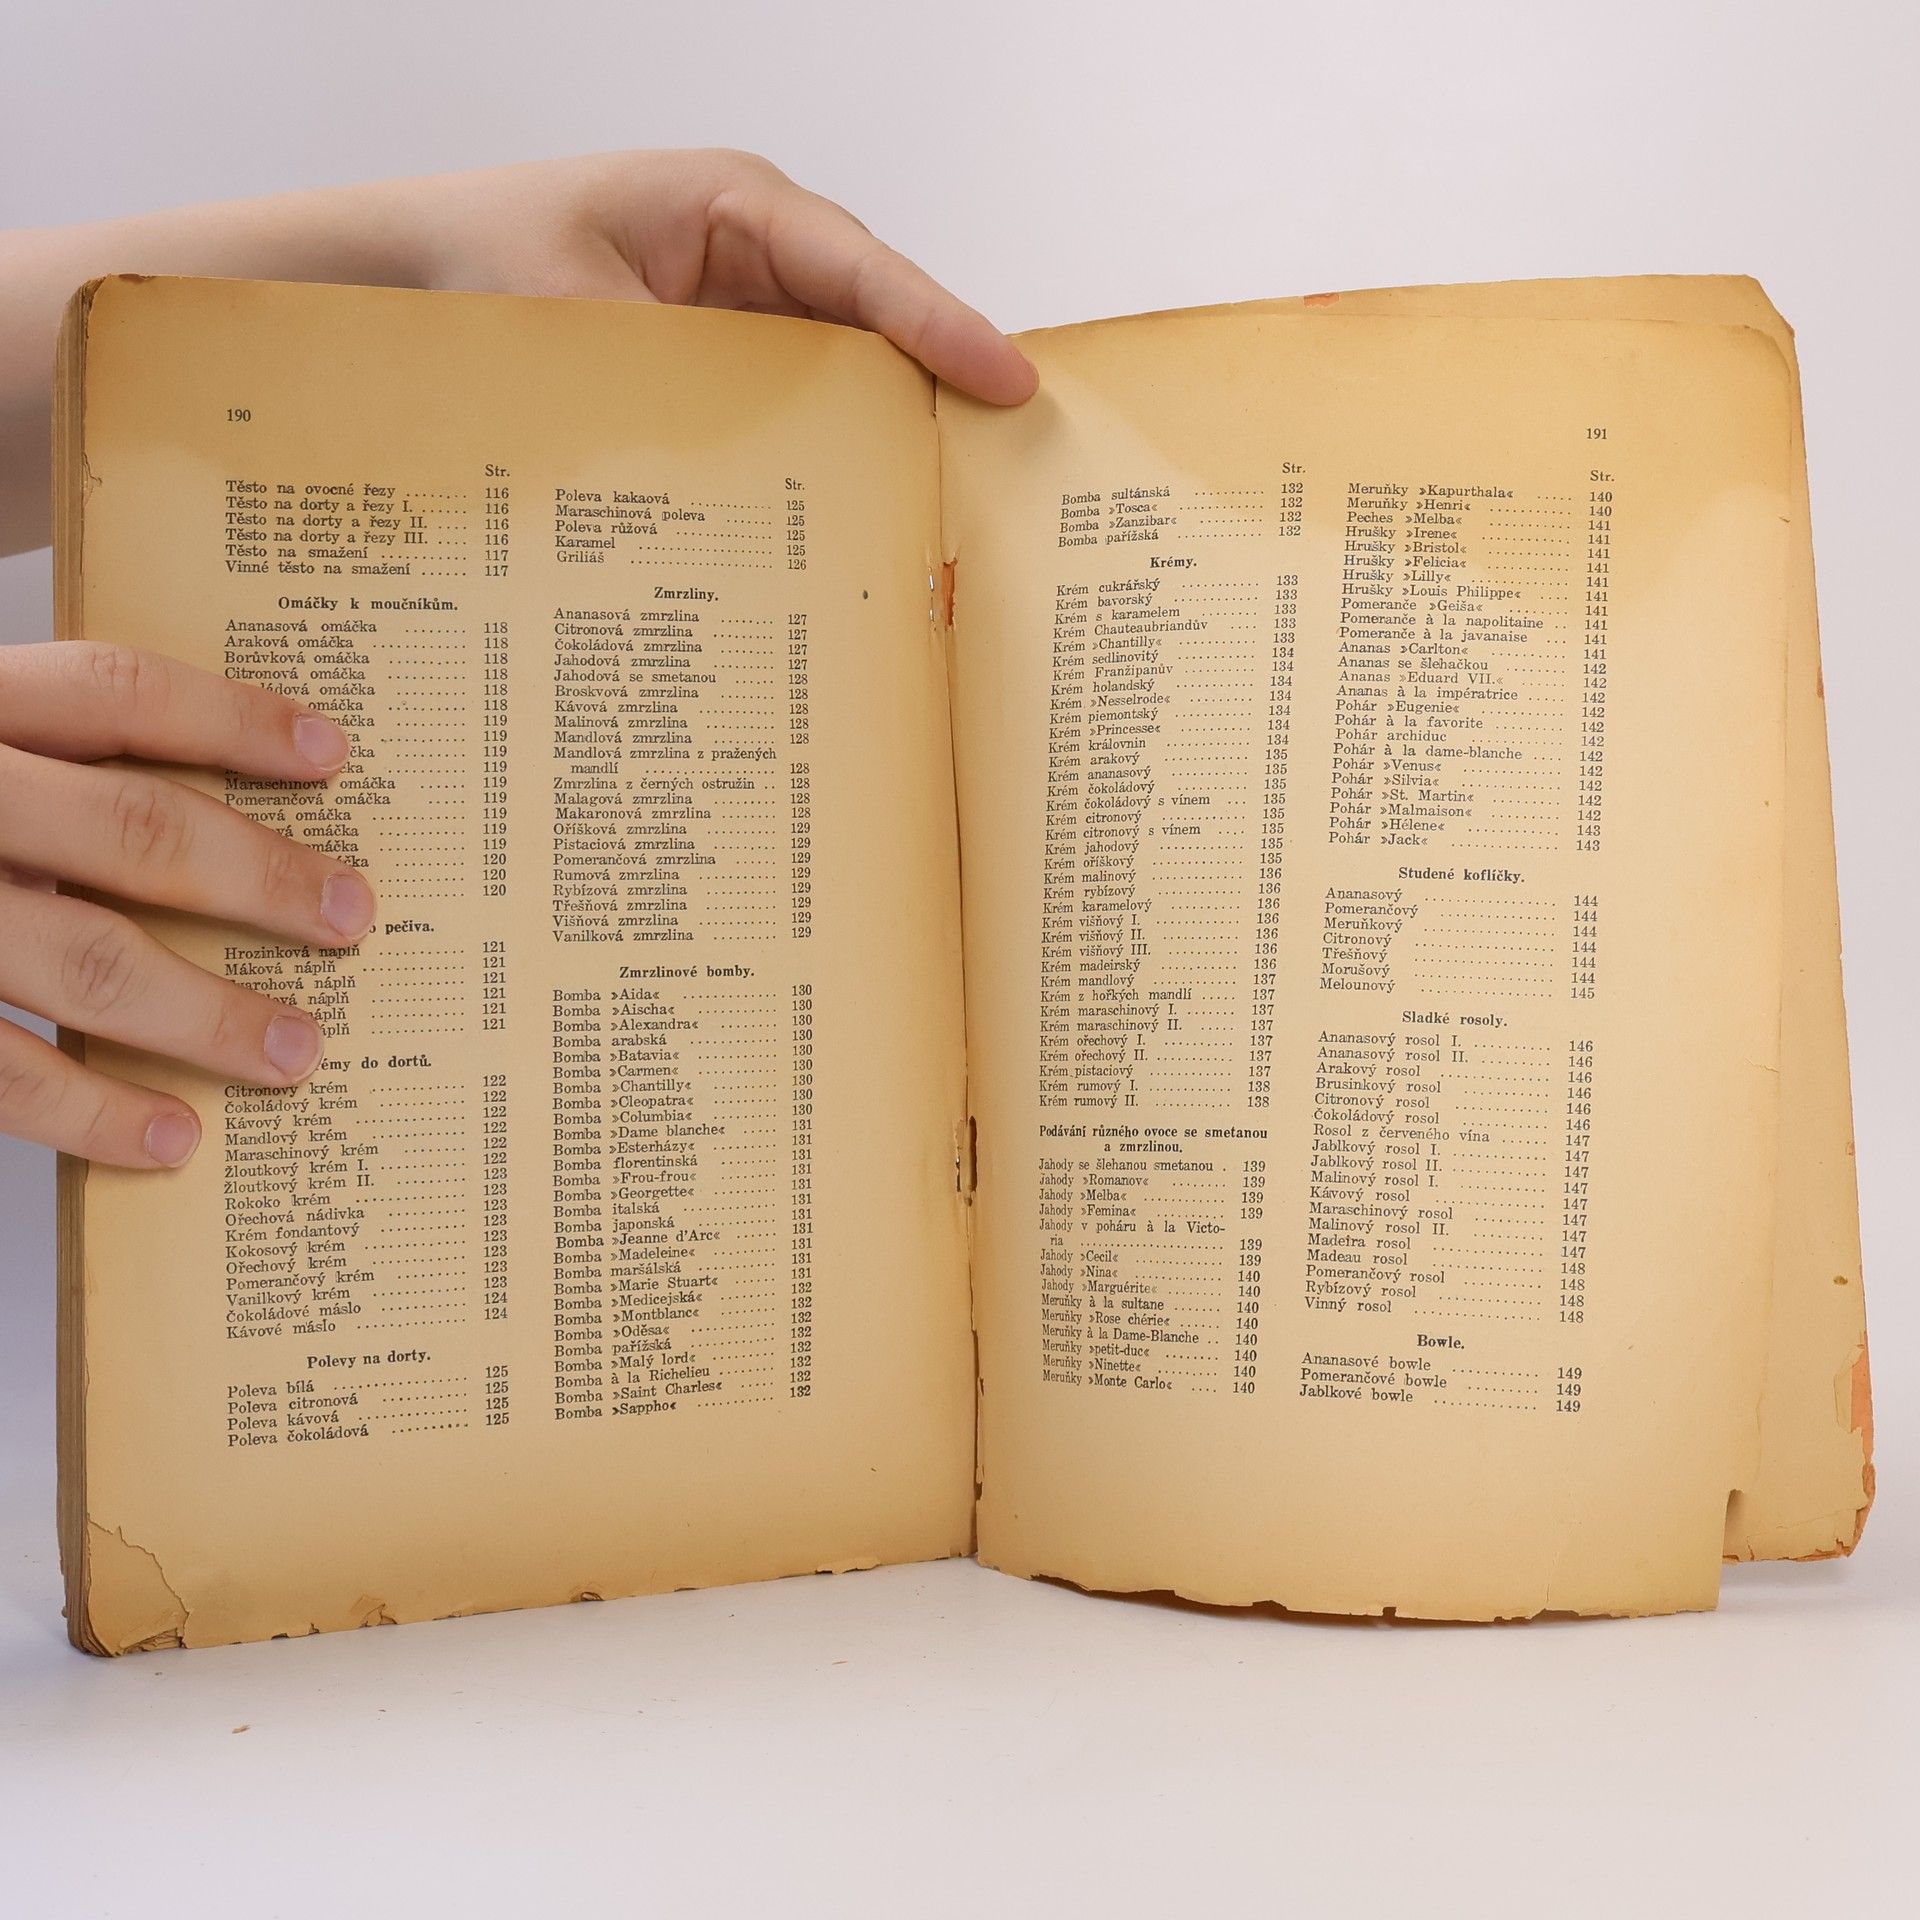 190
Str.
Těsto na ovocné řezy ........ 116
Těsto na dorty a řezy I. .... 116
Těsto na dorty a řezy II. .... 116
Těsto na dorty a řezy III. .... 116
Těsto na smažení ........... 117
Vinné těsto na smažení ...... 117
Omáčky k moučníkům.
Ananasová omáčka ........ 118
Araková omáčka .......... 118
Borůvková omáčka ......... 118
Citronová omáčka ......... 118
omáčka ........ 118
omáčka ......... 118
119
119
119
119
Maraschinová omáčka ...... 119
Pomerančová omáčka ..... 119
omáčka .......... 119
omáčka .......... 119
omáčka .......... 119
120
120
120
pečiva.
Hrozinková náplň ........... 121
Máková náplň ............. 121
náplň ............ 121
náplň ............ 121
náplň ............ 121
121
do dortů.
Citronový krém ............ 122
Čokoládový krém .......... 122
Kávový krém .............. 122
Mandlový krém ............ 122
Maraschinový krém ......... 122
Žloutkový krém I. .......... 122
Žloutkový krém II. ......... 123
Rokoko krém .............. 123
Ořechová nádivka .......... 123
Krém fondantový ........... 123
Kokosový krém ............ 123
Ořechový krém ............ 123
Pomerančový krém ......... 123
Vanilkový krém ............ 123
Čokoládové máslo .......... 124
Kávové máslo ............. 124
Polevy na dorty.
Poleva bílá ................ 125
Poleva citronová ........... 125
Poleva kávová ............. 125
Poleva čokoládová .......... 125
Str.
Poleva kakaová ............ 125
Maraschinová poleva ....... 125
Poleva růžová ............. 125
Karamel .................. 125
Griliáš ................... 126
Zmrzliny.
Ananasová zmrzlina ........ 127
Citronová zmrzlina ......... 127
Čokoládová zmrzlina ....... 127
Jahodová zmrzlina ......... 127
Jahodová se smetanou ...... 128
Broskvová zmrzlina ........ 128
Kávová zmrzlina .......... 128
Malinová zmrzlina ......... 128
Mandlová zmrzlina ........ 128
Mandlová zmrzlina z pražených
mandlí ................ 128
Zmrzlina z černých ostružin .. 128
Malagová zmrzlina ......... 128
Makaronová zmrzlina ....... 128
Oříšková zmrzlina ......... 129
Pistaciová zmrzlina ........ 129
Pomerančová zmrzlina ...... 129
Rumová zmrzlina .......... 129
Rybízová zmrzlina ......... 129
Třešňová zmrzlina ......... 129
Višňová zmrzlina .......... 129
Vanilková zmrzlina ........ 129
Zmrzlinové bomby.
Bomba »Aida« ............ 130
Bomba »Aischa« ........... 130
Bomba »Alexandra« ........ 130
Bomba arabská ............ 130
Bomba »Batavia« .......... 130
Bomba »Carmen« .......... 130
Bomba »Chantilly« ......... 130
Bomba »Cleopatra« ........ 130
Bomba »Columbia« ........ 130
Bomba »Dame blanche« ..... 131
Bomba »Esterházy« ........ 131
Bomba florentinská ........ 131
Bomba »Frou-frou« ........ 131
Bomba »Georgette« ........ 131
Bomba italská ............ 131
Bomba japonská ........... 131
Bomba »Jeanne d'Arc« ...... 131
Bomba »Madeleine« ........ 131
Bomba maršálská .......... 131
Bomba »Marie Stuart« ...... 132
Bomba »Medicejská« ....... 132
Bomba »Montblanc« ....... 132
Bomba »Oděsa« ........... 132
Bomba pařížská ........... 132
Bomba »Malý lord« ........ 132
Bomba à la Richelieu ....... 132
Bomba »Saint Charles« ..... 132
Bomba »Sappho« .......... 132
191
Str.
Bomba sultánská .......... 132
Bomba »Tosca« ........... 132
Bomba »Zanzibar« ......... 132
Bomba pařížská ........... 132
Krémy.
Krém cukrářský ........... 133
Krém bavorský ............ 133
Krém s karamelem ........ 133
Krém Chauteaubriandův .... 133
Krém »Chantilly« .......... 133
Krém sedlinovitý .......... 134
Krém Franžipanův ......... 134
Krém holandský ........... 134
Krém »Nesselrode« ........ 134
Krém piemontský .......... 134
Krém »Princesse« ......... 134
Krém královnin ........... 134
Krém arakový ............ 135
Krém ananasový .......... 135
Krém čokoládový ......... 135
Krém čokoládový s vínem ... 135
Krém citronový ........... 135
Krém citronový s vínem .... 135
Krém jahodový ........... 135
Krém oříškový ............ 135
Krém malinový ........... 136
Krém rybízový ............ 136
Krém karamelový ......... 136
Krém višňový I. ........... 136
Krém višňový II. .......... 136
Krém višňový III. ......... 136
Krém madeirský .......... 136
Krém mandlový ........... 137
Krém z hořkých mandlí ..... 137
Krém maraschinový I. ...... 137
Krém maraschinový II. ..... 137
Krém ořechový I. .......... 137
Krém ořechový II. ......... 137
Krém pistaciový .......... 137
Krém rumový I. ........... 138
Krém rumový II. .......... 138
Podávání různého ovoce se smetanou
a zmrzlinou.
Jahody se šlehanou smetanou . 139
Jahody »Romanov« ........ 139
Jahody »Melba« ........... 139
Jahody »Femina« .......... 139
Jahody v poháru à la Victo-
ria .................... 139
Jahody »Cecil« ............ 139
Jahody »Nina« ............ 140
Jahody »Marguérite« ....... 140
Meruňky à la sultane ....... 140
Meruňky »Rose chérie« ..... 140
Meruňky à la Dame-Blanche .. 140
Meruňky »petit-duc« ....... 140
Meruňky »Ninette« ........ 140
Meruňky »Monte Carlo« .... 140
Str.
Meruňky »Kapurthala« ..... 140
Meruňky »Henri« .......... 140
Peches »Melba« ........... 141
Hrušky »Irene« ............ 141
Hrušky »Bristol« .......... 141
Hrušky »Felicia« .......... 141
Hrušky »Lilly« ............ 141
Hrušky »Louis Philippe« .... 141
Pomeranče »Geiša« ........ 141
Pomeranče à la napolitaine .. 141
Pomeranče à la javanaise ... 141
Ananas »Carlton« ......... 141
Ananas se šlehačkou ....... 142
Ananas »Eduard VII.« ...... 142
Ananas à la impératrice .... 142
Pohár »Eugenie« .......... 142
Pohár à la favorite ........ 142
Pohár archiduc ........... 142
Pohár à la dame-blanche .... 142
Pohár »Venus« ............ 142
Pohár »Silvia« ............ 142
Pohár »St. Martin« ......... 142
Pohár »Malmaison« ........ 142
Pohár »Hélene« ........... 143
Pohár »Jack« ............. 143
Studené koflíčky.
Ananasový ............... 144
Pomerančový ............. 144
Meruňkový ............... 144
Citronový ................ 144
Třešňový ................. 144
Morušový ................ 144
Melounový ............... 145
Sladké rosoly.
Ananasový rosol I. ......... 146
Ananasový rosol II. ........ 146
Arakový rosol ............ 146
Brusinkový rosol .......... 146
Citronový rosol ........... 146
Čokoládový rosol ......... 146
Rosol z červeného vína ..... 147
Jablkový rosol I. .......... 147
Jablkový rosol II. ......... 147
Malinový rosol I. .......... 147
Kávový rosol ............. 147
Maraschinový rosol ........ 147
Malinový rosol II. ......... 147
Madeira rosol ............ 147
Madeau rosol ............. 148
Pomerančový rosol ........ 148
Rybízový rosol ........... 148
Vinný rosol .............. 148
Bowle.
Ananasové bowle ......... 149
Pomerančové bowle ........ 149
Jablkové bowle ........... 149